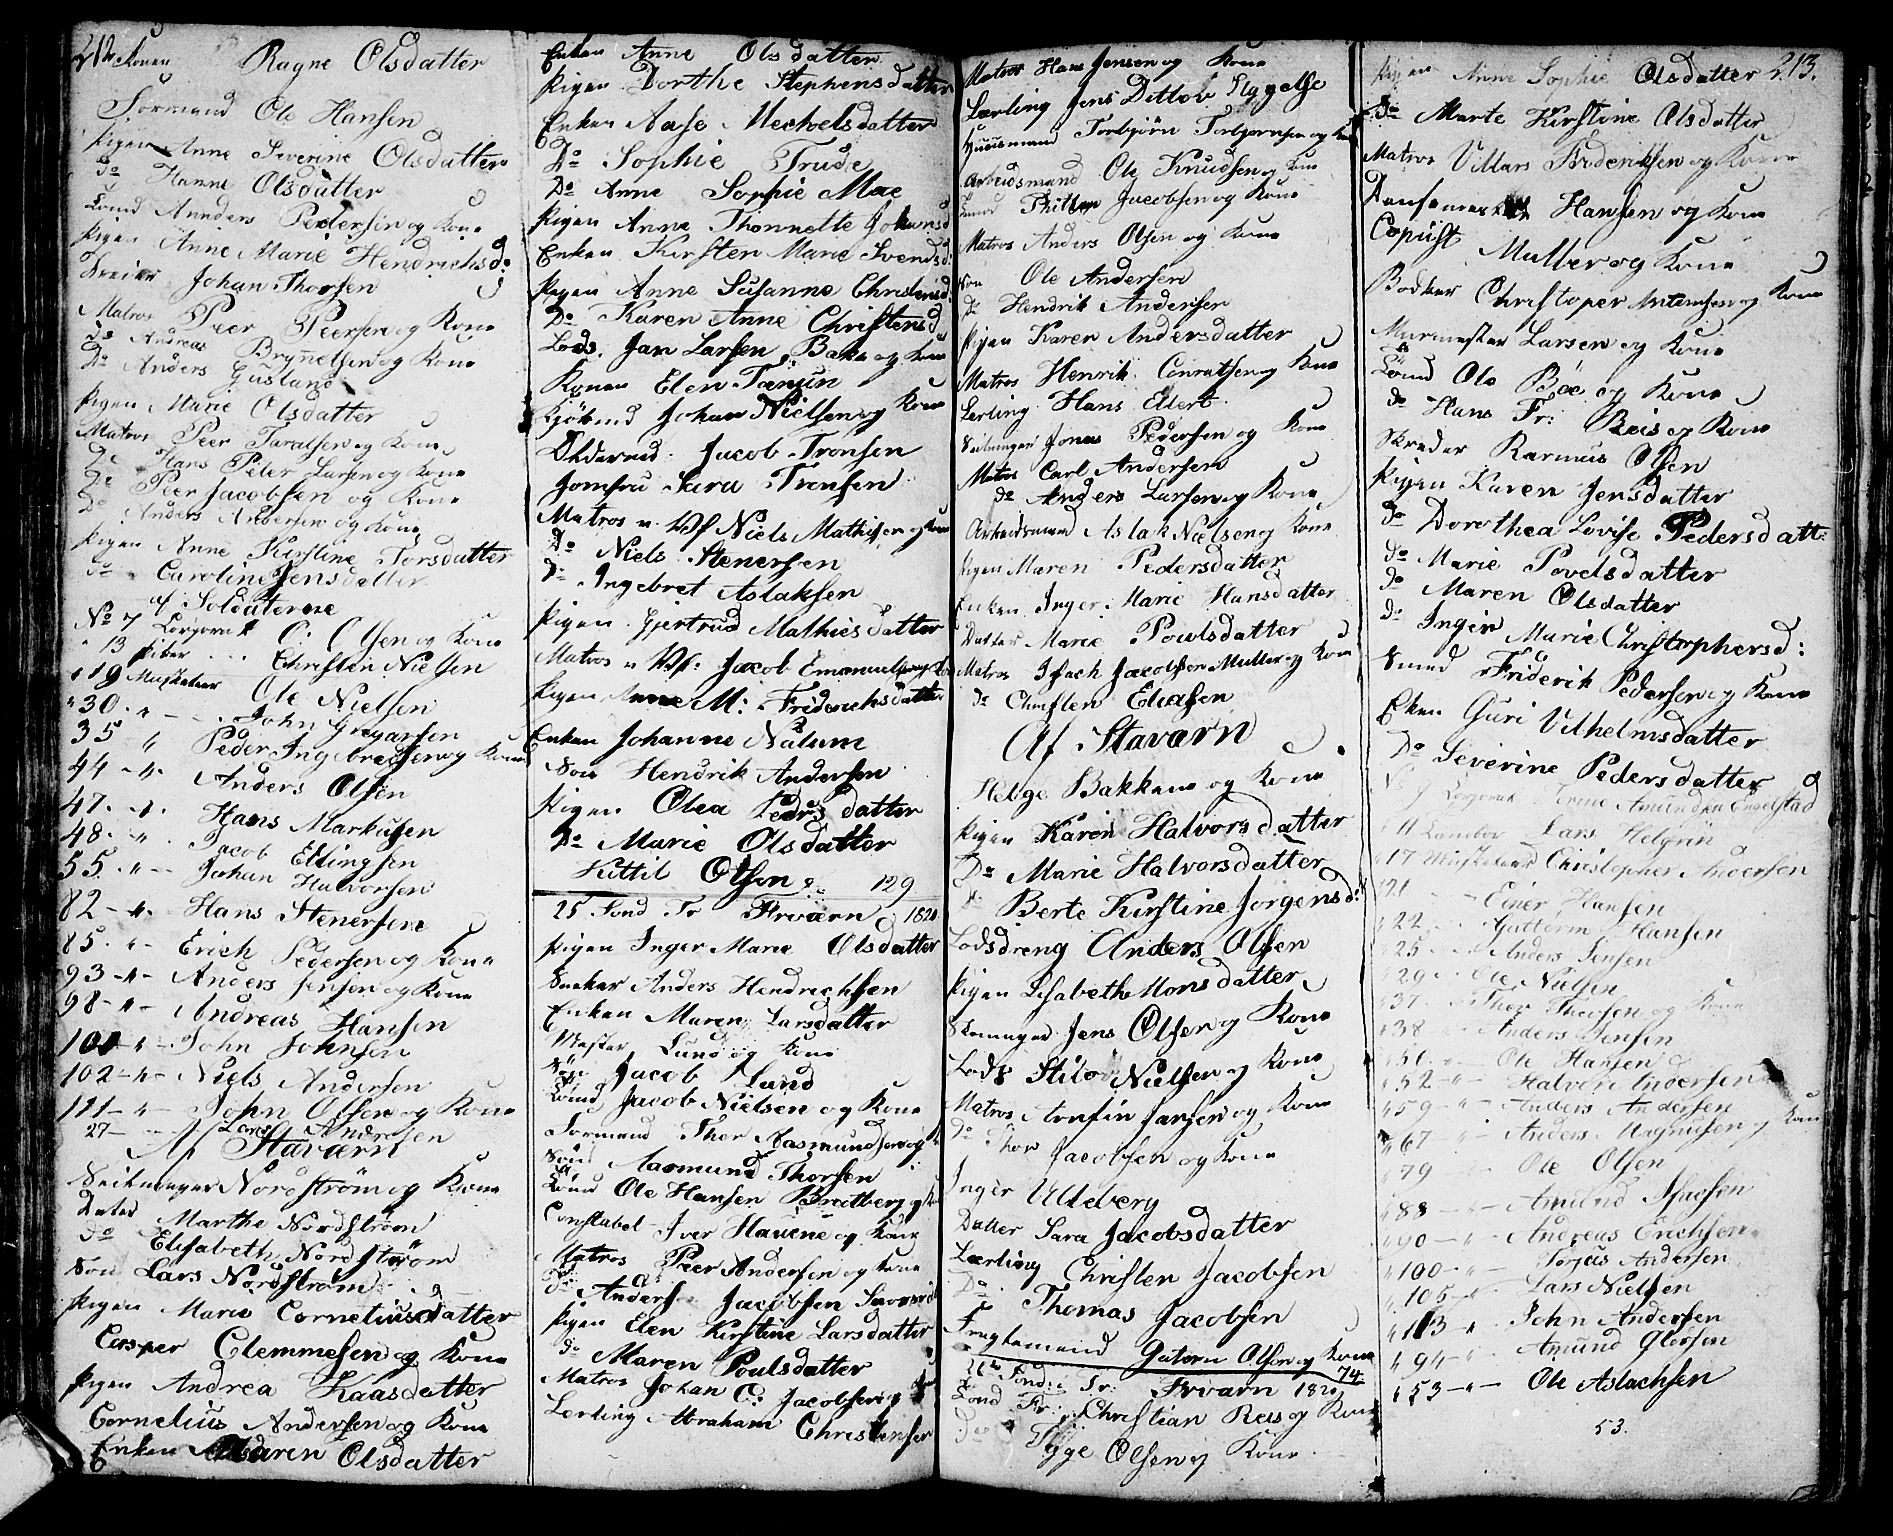 212
Konen Ragne Olsdatter
Formand Ole Hansen
Pigen Anne Severine Olsdatter
Do Hanne Olsdatter
Lønd Annders Pedersen og Kone
Pigen Anne Marie Hendrichsd:
Dreier Johan Thorsen
Matros Peer Peersen og Kone
Do Andreas Brynelsen og Kone
Do Anders Gusland
Pigen Marie Olsdatter
Matros Peer Taralsen og Kone
Do Hans Peter Larsen og Kone
Do Peer Jacobsen og Kone
Do Anders Andersen og Kone
Pigen Anne Kirstine Torsdatter
Do Caroline Jensdatter
af Soldaterne
No 7 Corporal O: Olsen og Kone
" 13 Piber Christen Nielsen
" 19 Musketeer Ole Nielsen
" 30 " John Gregarsen
35 " Peder Ingebretsen og Kone
44 " Anders Olsen
47 " Hans Markusen
48 " Jacob Ellingsen
55 " Johan Halvorsen
82 " Hans Stenersen
85 " Erich Pedersen og Kone
93 " Anders Jensen og Kone
98 " Andreas Hansen
101 " John Johnsen
102 " Niels Andersen
111 " John Olsen og Kone
27 Lars Andersen
Af Staværn
Seilmager Nordstrøm og Kone
Datter Marthe Nordstrøm
do Elisabeth Nordstrøm
Søn Lars Nordstrøm
Pigen Marie Corneliusdatter
Casper Clemmesen og Kone
Pigen Andrea Kaasdatter
Cornelius Andersen og Kone
Enken Maren Olsdatter
Enken Anne Olsdatter
Pigen Dorthe Stephensdatter
Enken Aase Mechelsdatter
Do Sophie Trude
Do Anne Sophie Moe
Pigen Anne Thonnette Johansd
Enken Kirsten Marie Svendsd:
Pigen Anne Susanne Christensd
Do Karen Anne Christensd
Lods. Jan Larsen Bakke og Kone
Konen Elen
Johan Nielsen og Kone
Jacob Tronsen
Jomfru Sara Tronsen
Matros Niels Mathisen og Kone
Do Niels Stenersen
Do Ingebret Aslaksen
Pigen Gjertrud Mathiesdatter
Matros Jacob Emanuelsen og Kone
Pigen Anne M: Friderichsdatter
Enken Johanne Nalum
Søn Hendrik Andersen
Pigen Olea Pedersdatter
Do Marie Olsdatter
Kittil Olsen 129
25 Sönd Tr Frværn 1820
Pigen Inger Marie Olsdatter
Sneker Anders Hendrichsen
Enken Maren Larsdatter
Mester Lund og Kone
Søn Jacob Lund
Lønd Jacob Nielsen og Kone
Formand Ther Aasmundsen og K
Søn Aasmund Thorsen
Lønd Ole Hansen Bratberg og K
Constabel Iver Havene og Kone
Matros Peer Andersen og Kone
Do Anders Jacobsen
Pigen Elen Kirstine Larsdatter
do Maren Poulsdatter
Matros Johan C: Jacobsen og Kone
Lerling Abraham Christensen
Matros Hans Jensen og Kone
Lærling Jens Ditlev Hyggelse
Huusmand Torbjørn Torbjørnsen og Kone
Arbeidsmand Ole Knudsen og Kone
Lønd Phillip Jacobsen og Kone
Matros Anders Olsen og Kone
Søn Ole Andersen
Do Hendrik Andersen
Pigen Karen Andersdatter
Matros Henrik Conratsen og Kone
Lerling Hans Ellert
Jonas Pedersen og Kone
Matros Carl Andersen
do Anders Larsen og Kone
Arbeidsmand Aslak Nielsen og Kone
Pigen Maren Pedersdatter
Enken Inger Marie Hansdatter
Datter Marie Poulsdatter
Matros Isach Jacobsen Muller og Kone
do Christen Eliasen
Af Staværn
Helge Bakkene og Kone
Pigen Karen Halvorsdatter
Do Marie Halvorsdatter
Do Berte Kirstine Jørgensd:
Lodsdreng Anders Olsen
Pigen Lisabeth Monsdatter
Jens Olsen og Kone
Lods Nielsen og Kone
Matros Arnfin Jansen og Kone
Do Thor Jacobsen og Kone
Inger Ulleberg
Datter Sara Jacobsdatter
Lærling Christen Jacobsen
Do Thomas Jacobsen
Fragtemand Gutorm Olsen og Kone
74
26 Sönd: Tr: Frværn 1820
Lönd Fr: Christian Reis og Kone
Do Tygge Olsen og Kone
213.
Pigen Anne Sophie Olsdatter
Do Marte Kirstine Olsdatter
Matros Villars Frideriksen og Kone
Hansen og Kone
Copiist Muller og Kone
Bødker Christoper Mortensen og Kone
Murmester Larsen og Kone
Lønd Ole Bøe og Kone
do Hans Fr: Reis og Kone
Skreder Rasmus Olsen
Pigen Karen Jensdatter
Do Dorothea Lovise Pedersdatt:
Do Marie Povelsdatter
do Maren Olsdatter
do Inger Marie Christophersd:
Smed Friderik Pedersen og Kone
Enken Guri Vilhelmsdatter
Do Severine Pedersdatter
No 9 Corporal Amundsen Engelstad
" 11 Tambor Lars Helgrin
" 17 Musketeer Christopher Andersen
" 21 Einer Hansen
" 22 Guttorm Hansen
" 25 Anders Jensen
" 29 Ole Nielsen
" 37 Thor Theosen og Kone
" 38 " Anders Jensen
" 50 " Ole Hansen
" 52 " Halvor Andersen
" 59 " Anders Andersen
" 67 " Anders Magnusen og Kone
" 79 " Ole Olsen
" 88 " Amund Isacsen
" 90 " Andreas Erichsen
" 100 " Torjus Andersen
" 105 " Lars Nielsen
" 113 " John Andersen
" 94 " Amund Olersen
" 53 " Ole Aslachsen
53.